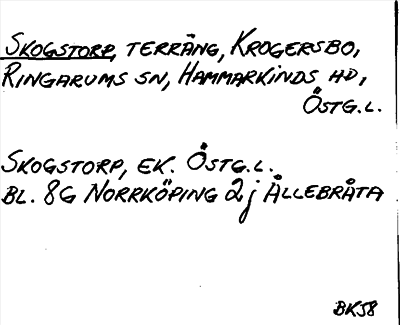 SKOGSTORP, TERRÄNG, KROGERSBO,
RINGARUMS SN, HAMMARKINDS HD,
ÖSTG.L.
SKOGSTORP, EK. ÖSTG.L.
BL. 8G NORRKÖPING 2j ÅLLEBRÅTA
BK58